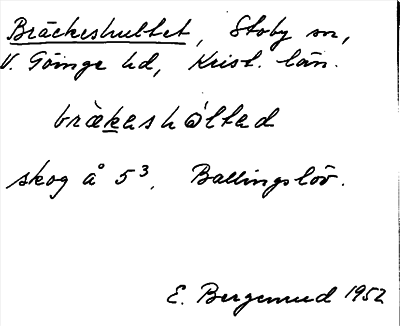 Bräckeshultet, Stoby sn,
V. Göinge hd, Krist. län.
bràkashòltad
skog å 5³. Ballingslöv.
E. Bergemud 1952